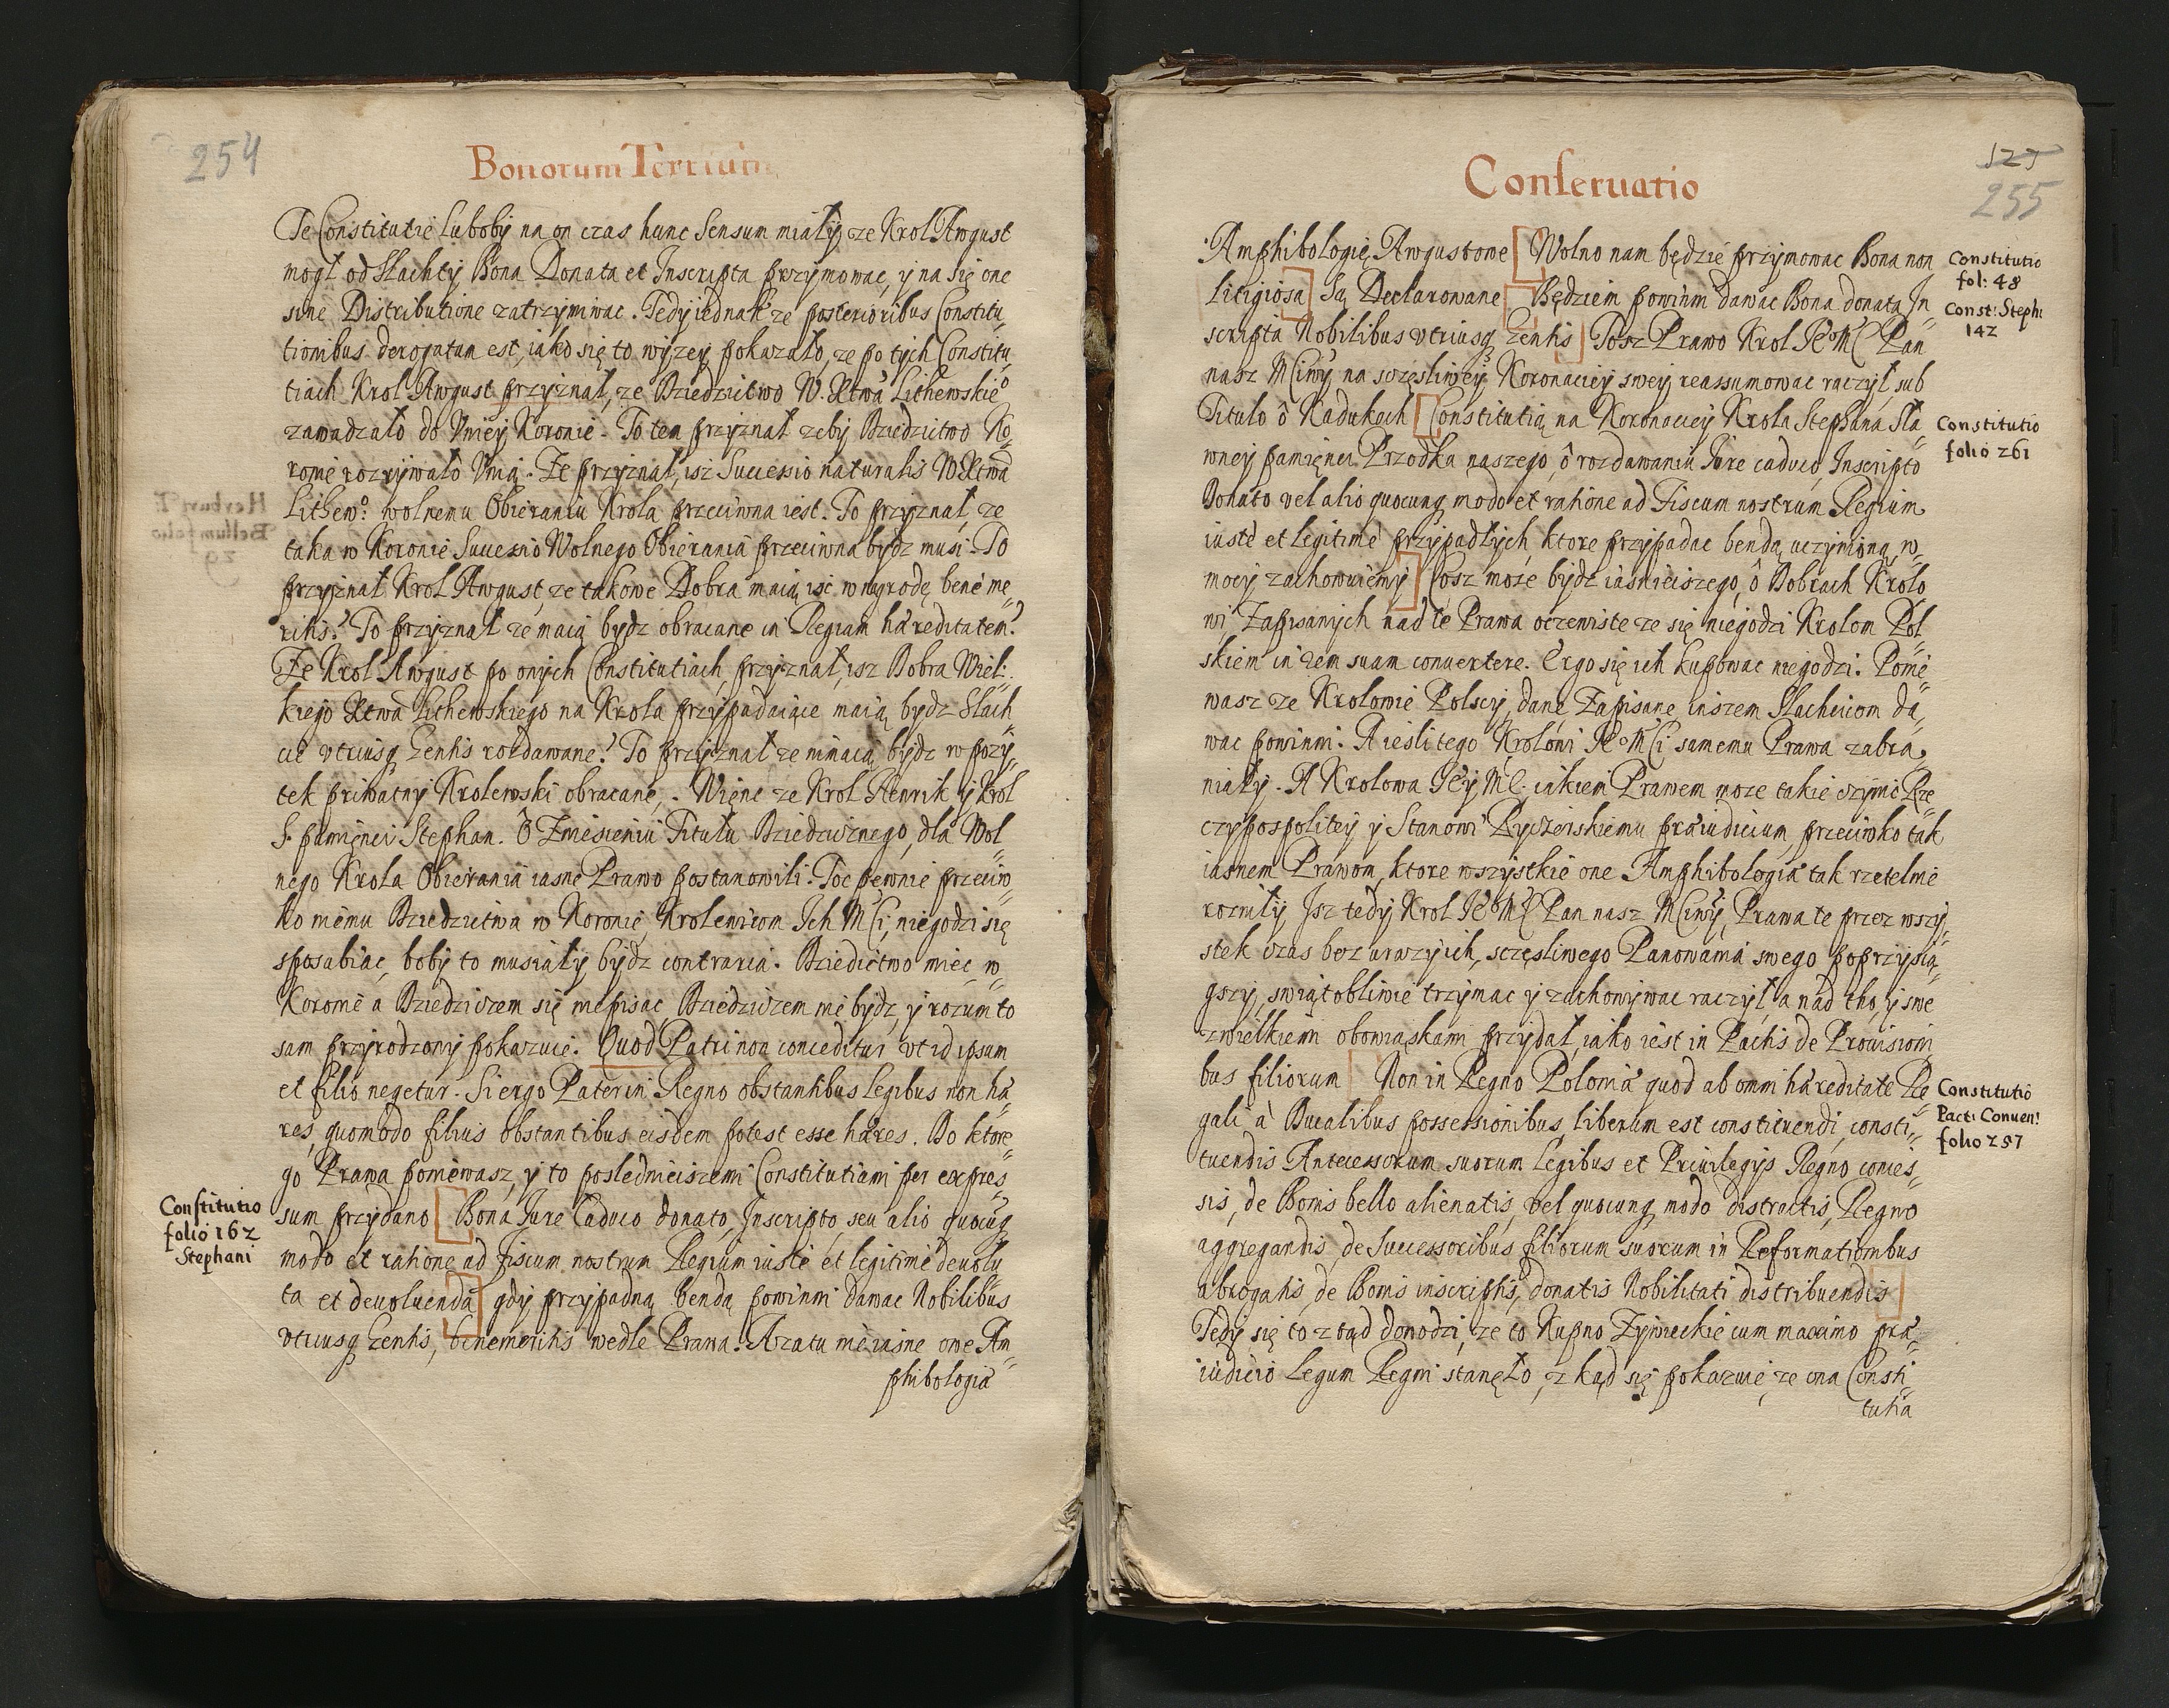 254
Bonorum Tertium
Te Constitutie luboby na on czas hunc sensum miały, ze Krol Awgust
mogł od Slachty Bona Donata et Inscripta przymowac, y na się one
sine Distributione zatrzymiwac. Tedy iednak ze posterioribus Constitu„
tionibus derogatum est, iako się to wyzey pokazało, ze po tych Constitu„
tiach Krol Awgust przyznał, ze Dziedzictwo W. Xtwa Lithewskieº
zawadzało do Vniey Koronie. To ten przyznał zeby Dziedzictwo Ko„
ronie rozrywało Vnią. Ze przyznał, isz Successio naturalis W Xtwa
Lithewº. wolnemu Obieraniu Krola przeciwna iest. To przyznał, ze
taka w Koronie Successio Wolnego Obierania przeciwna bydz musi. To
przyznał Krol Awgust, ze takowe Dobra maią isc w nagrodę bene me„
ritis? To przyznał ze maią bydz obracane in Regiam hæreditatem?
Ze Krol Awgust po onych Constitutiach, przyznał, isz Dobra Wiel„
kiego Xtwa Lithewskiego na Krola przypadaiące maią bydz Slach„
cie vtriusq Gentis rozdawane? To przyznał ze nimaią bydz w pozy„
tek priwatny Krolewski obracane. Więne ze Krol Henrik y Krol
S. pamięnci Stephan. O Zniesieniu Titułu Dziedzicznego, dla Wol„
nego Krola Obierania iasne Prawo postanowili. Toc pewnie przeciw„
ko niemu Dziedzictwa w Koronie, Krolewicom Ich Mci, niegodzi się
sposabiac, boby to musiały bydz contraria. Dziedictwo miec w
Koronie a Dziedziczem się niepisac, Dziedziczem nie bydz, y rozum to
sam przyrodzony pokazuie. Quod Patri non conceditur vt id ipsum
et filio negetur. Si ergo Pater in Regno obstantibus legibus non hæ„
res, quomodo filius obstantibus eisdem potest esse hæres. Do ktore„
go Prawa poniewasz, y to posledniejszemi Constitutiami per expres„
sum przydano [Bona Iure Caduco donato, Inscripto, seu alio quocuq
modo et ratione ad fiscum nostrum Regium iuste et legitime deuolu„
ta et deuoluenda] gdy przypadną, bendą powinni dawac Nobilibus
vtriusq Gentis, benemeritis wedle Prawa. A zatu nie iasne one Am„
phibologia
Constitutio
folio 162
Stephani
525
255
Conseruatio
Amphibologię Awgustowe [Wolno nam będzie przymowac Bona non
litigiosa] Są Declarowane [Będziem powinni dawac Bona donata In„
scripta Nobilibus vtriusq Gentis] Tosz Prawo Krol Ieº Mć Pan
nasz Mciwy na sczęsliwey Koronaciey swey reassumowac raczył sub
Titulo o Kadukach [Constitutią na Koronaciey Krola Stephana Sła„
wney pamięnci Przodka naszego, o rozdawaniu Iure caduco, Inscripto
Donato vel alio quocunq modo et ratione ad Fiscum nostrum Regium
iuste et legitime przypadłych, ktore przypadac bendą uczynioną w„
mocy zachowuiemy] Cosz moze bydz iasnieiszego, o Dobrach Krolo„
wi Zapisanych nad te Prawa oczewiste ze się niegodzi Krolom Pol„
skiem in rem suam conuertere. Ergo się ich kupowac niegodzi. Ponie„
wasz ze Krolowie Polscy, dane Zapisane inszem Slachcicom da„
wac powinni. A iesli tego Krolowi Ieº Mci samemu Prawa zabra„
niały. A Krolowa Iey Mć. iakiem Prawem moze takie czynic Rze„
czypospolitey y Stanowi Ryczerskiemu præiudicium, przeciwko tak
iasnem Prawom, ktore wszystkie one Amphibologia tak rzetelnie
rozniły Isz tedy Krol Ieº Mć Pan nasz Mciwy, Prawa te przez wszy„
stek czas bez urazy ich, sczęsliwego Panowania swego poprzysią„
gszy, swiątobliwie trzymac y zachowywac raczył, a nad tho, y swe
z wielkiemi obowiąskami przydał, iako iest in Pactis de Prouisioni
bus filiorum [Non in Regno Poloniæ quod ab omni hæreditate Re„
gali à Ducalibus possessionibus, liberum est constituendi, consti„
tuendis Antecessorum suorum legibus et Priuilegijs Regno conces„
sis, de Bonis bello alienatis, vel quocunq modo distractis, Regno
aggregandis, de Successoribus filiorum suorum in Reformationibus
abrogatis, de Bonis inscriptis, donatis Nobilitati distribuendis]
Tedy się to ztąd dowodzi, ze to Kupno Zywieckie cum maximo præ„
iudicio legum Regni stanęło, z kąd się pokazuie, ze ona Consti„
tutia
Constitutio
fol: 48
Const: Steph:
142
Constitutio
folio 261
Constitutio
Pact: Conuen:
folio 257